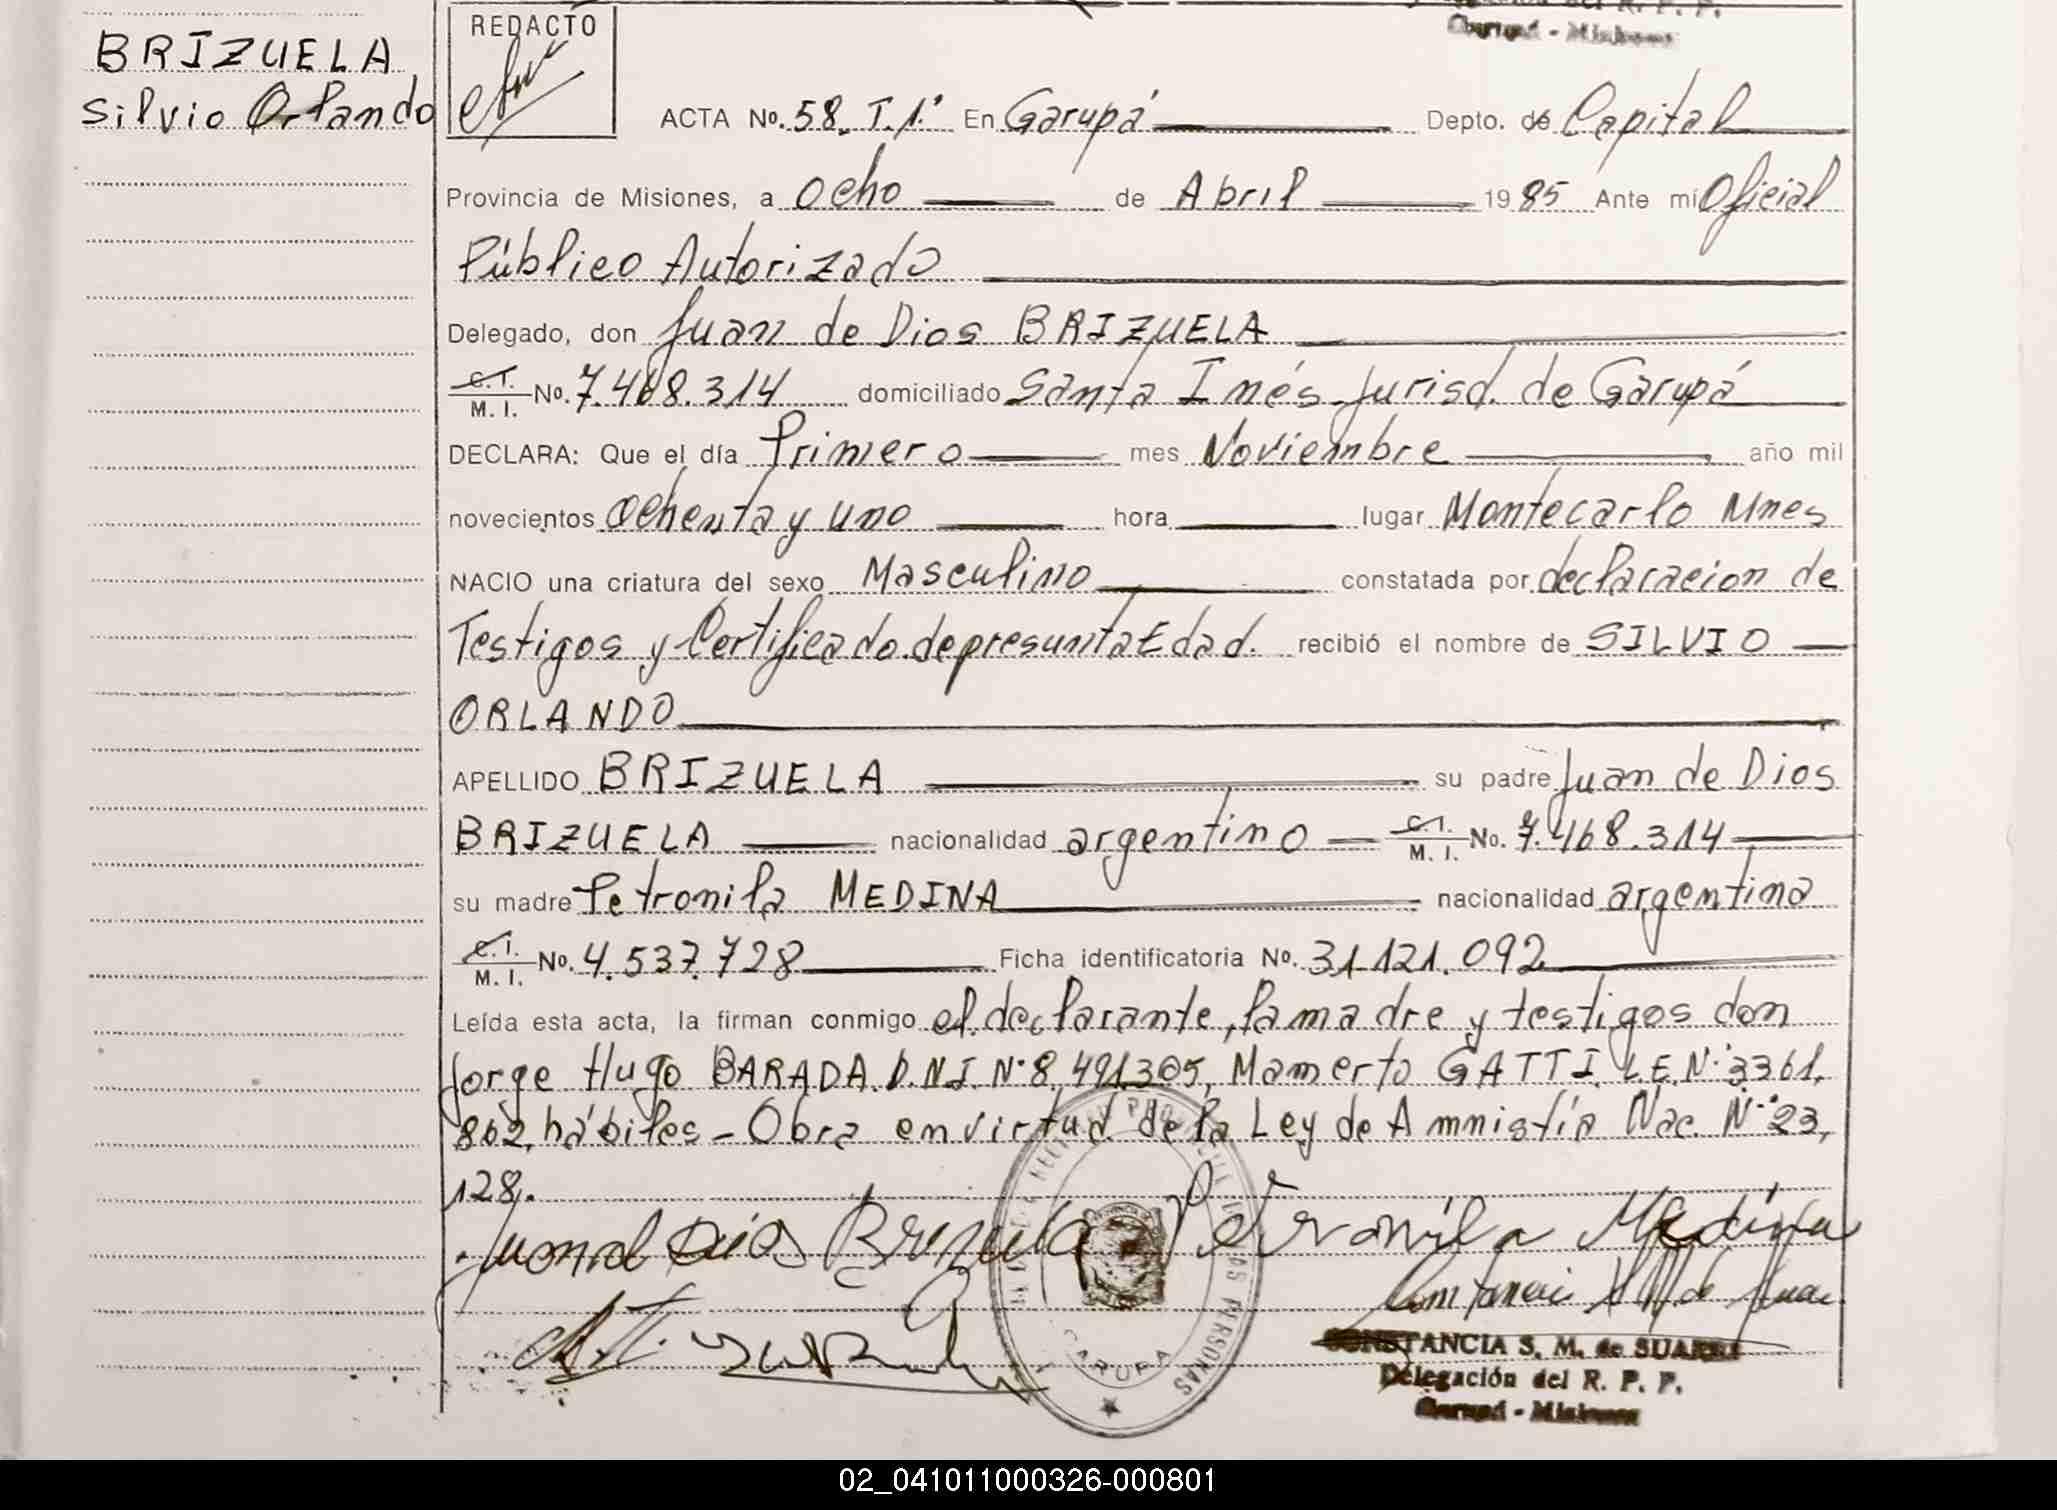 Garupá - Misiones
BRIZUELA
Silvio Orlando
REDACTO
ACTA No. 58. T.1.º En Garupá Depto. de Capital
Provincia de Misiones, a Ocho de Abril 1985 Ante mí Oficial
Público Autorizado
Delegado, don Juan de Dios BRIZUELA
C.I./M.I. No. 7.468.314 domiciliado Santa Inés Jurisd. de Garupá
DECLARA: Que el día Primero mes Noviembre año mil
novecientos Ochenta y uno hora lugar Montecarlo Mnes
NACIO una criatura del sexo Masculino constatada por declaracion de
Testigos y Certificado de presunta Edad. recibió el nombre de SILVIO
ORLANDO
APELLIDO BRIZUELA su padre Juan de Dios
BRIZUELA nacionalidad argentino C.I./M.I. No. 7.468.314
su madre Petronila MEDINA nacionalidad argentina
C.I./M.I. No. 4.537.728 Ficha identificatoria No. 31.121.092
Leída esta acta, la firman conmigo el declarante, la madre y testigos don
Jorge Hugo BARADA D.N.I. Nº 8.491.305, Mamerto GATTI L.E. Nº 3361.
802, hábiles - Obra en virtud de la Ley de Amnistía Nac. Nº 23,
128.
Juan d Dios Brizuela Petronila Medina
CONSTANCIA S. M. de SUAREZ
Delegación del R. P. P.
Garupá - Misiones
GARUPA
02_041011000326-000801